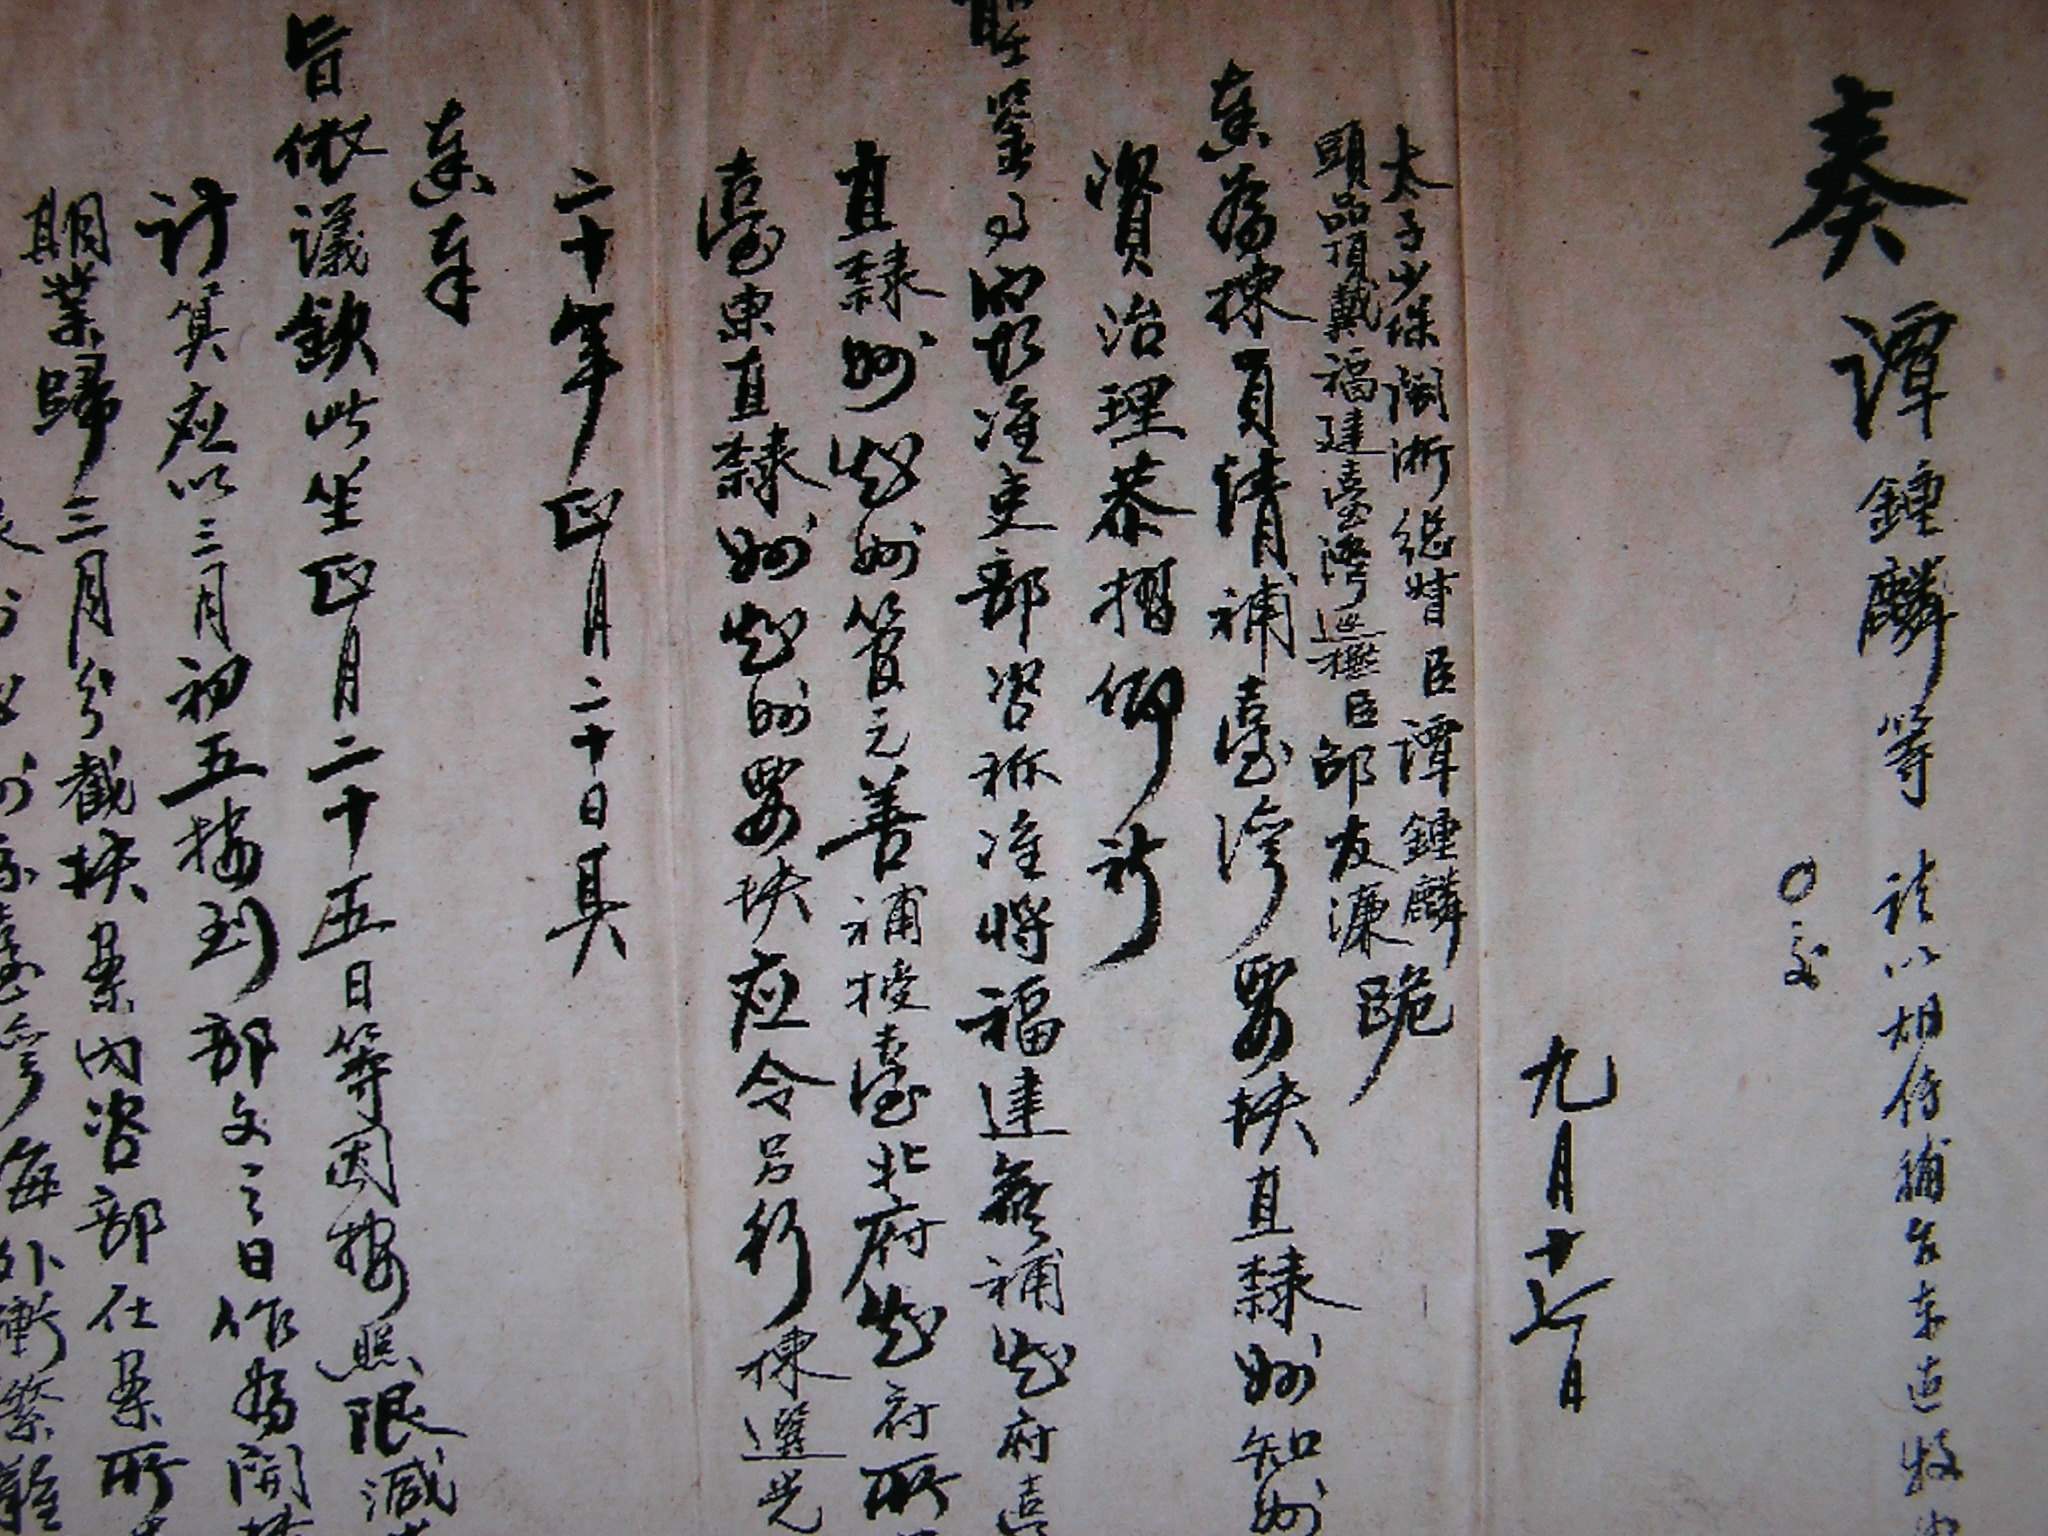 奏 譚鍾麟等 請以胡傳補台東直牧
交
九月十七日
太子少保閩浙總督臣譚鍾麟
頭品頂戴福建臺灣巡撫臣邵友濂跪
奏為揀員請補臺灣要缺直隸州知州
資治理恭摺仰祈
聖鑒事竊照准吏部咨稱准將福建候補知府臺
直隸州知州管元善補授臺北府知府所
臺東直隸州知州要缺應令另行揀選
二十年正月二十日具
奏奉
旨依議欽此坐正月二十五日等因按照限減
計算應以三月初五接到部文之日作為開
期業歸三月分截缺造冊咨部在案所
臺灣海外衝繁難